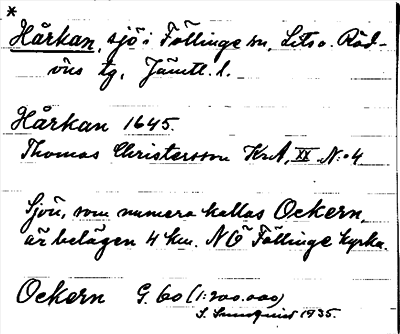 *
Hårkan, sjö i Föllinge sn, Lits o. Röd-
öns tg, Jämtl. l.
Hårkan 1645.
Thomas Christersson KrA, XX N:o 4
Sjön, som numera kallas Ockern,
är belägen 4 km. NÖ Föllinge kyrka.
Ockern G. 60 (1:200.000)
1935.